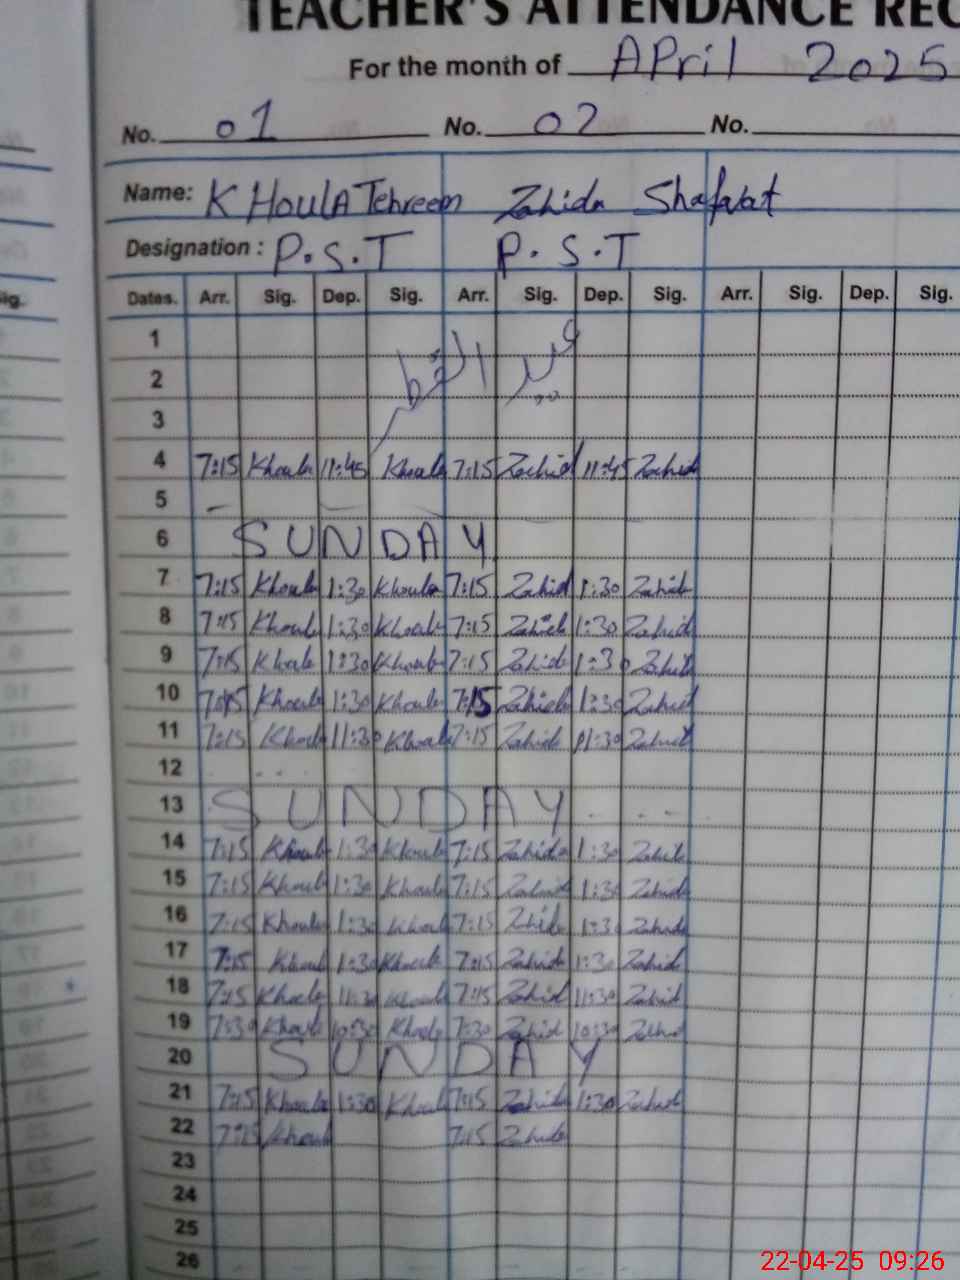 TEACHER'S ATTENDANCE REC
For the month of APril 2025
No. 01 No. 02 No.
Name: KHoulA Tehreem Zahida Shafwat
Designation : P.S.T P.S.T
Dates. Arr. Sig. Dep. Sig. Arr. Sig. Dep. Sig. Arr. Sig. Dep. Sig.
1
عید الفطر
2
3
4 7:15 Khoula 11:45 Khoula 7:15 Zahid 11:45 Zahid
5
6 SUNDAY
7 7:15 Khoula 1:30 Khoula 7:15 Zahid 1:30 Zahid
8 7:15 Khoula 1:30 Khoula 7:15 Zahid 1:30 Zahid
9 7:15 Khoula 1:30 Khoula 7:15 Zahid 1:30 Zahid
10 7:15 Khoula 1:30 Khoula 7:15 Zahid 1:30 Zahid
11 7:15 Khoula 11:30 Khoula 7:15 Zahid 11:30 Zahid
12
13 SUNDAY
14 7:15 Khoula 1:30 Khoula 7:15 Zahida 1:30 Zahid
15 7:15 Khoula 1:30 Khoula 7:15 Zahid 1:30 Zahid
16 7:15 Khoula 1:30 Khoula 7:15 Zahid 1:30 Zahid
17 7:15 Khoula 1:30 Khoula 7:15 Zahid 1:30 Zahid
18 7:15 Khoula 11:30 Khoula 7:15 Zahid 11:30 Zahid
19 7:30 Khoula 10:30 Khoula 7:30 Zahid 10:30 Zahid
20 SUNDAY
21 7:15 Khoula 1:30 Khoula 7:15 Zahida 1:30 Zahid
22 7:15 Khoula 7:15 Zahid
23
24
25
26
22-04-25 09:26